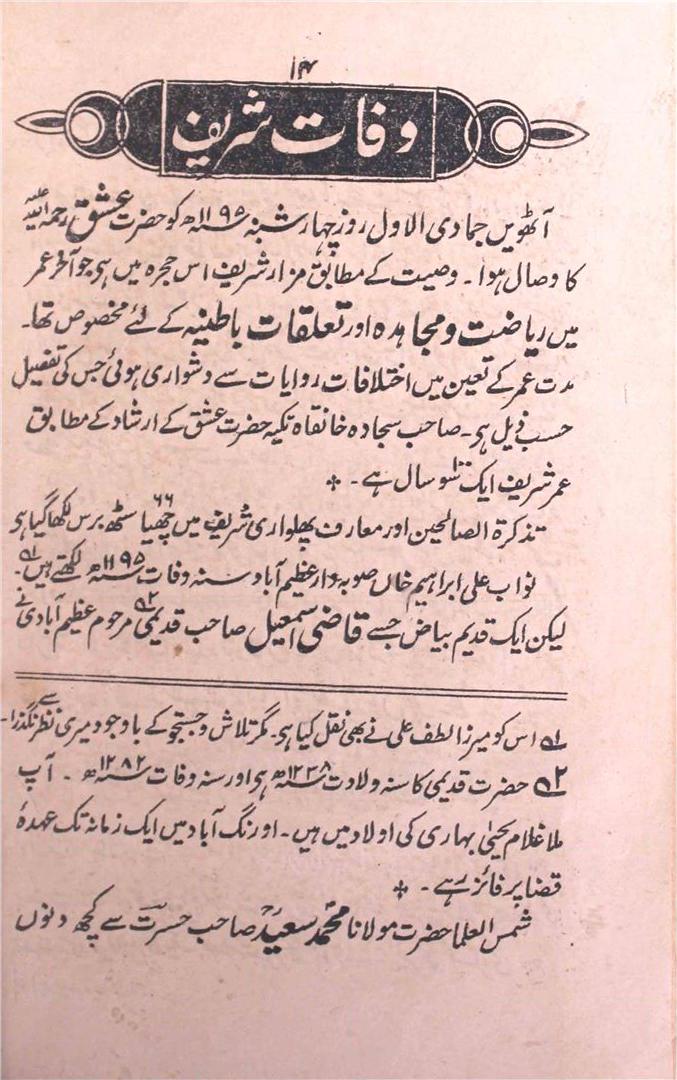 ۱۴
وفات شریف
آٹھویں جمادی الاول روز چہار شنبہ ۱۱۹۵ھ کو حضرت عشق رحمۃ اللہ علیہ
کا وصال ہوا۔ وصیت کے مطابق مزار شریف اس حجرہ میں ہی جو آخر عمر
میں ریاضت و مجاہدہ اور تعلقات باطنیہ کے لئے مخصوص تھا۔
مدت عمر کے تعین میں اختلافات روایات سے دشواری ہوئی جس کی تفصیل
حسب ذیل ہی۔ صاحب سجادہ خانقاہ تکیہ حضرت عشق کے ارشاد کے مطابق
عمر شریف ایک سو ۱۰۰ سال ہے۔
تذکرۃ الصالحین اور معارف پھلواری شریف میں چھیاسٹھ ۶۶ برس لکھا گیا ہی
نواب علی ابراہیم خاں صوبہ دار عظیم آباد سنہ وفات ۱۱۹۵ھ لکھتے ہیں ۱؎۔
لیکن ایک قدیم بیاض جسے قاضی اسمٰعیل صاحب قدیمی ۲؎ مرحوم عظیم آبادی نے
۱؎ اس کو میرزا لطف علی نے بھی نقل کیا ہی۔ مگر تلاش و جستجو کے باوجود میری نظر سے نگذرا۔
۲؎ حضرت قدیمی کا سنہ ولادت ۱۲۳۸ھ ہی اور سنہ وفات ۱۲۸۲ھ۔ آپ
ملا غلام یحییٰ بہاری کی اولاد میں ہیں۔ اورنگ آباد میں ایک زمانہ تک عہدۂ
قضا پر فائز رہے۔
شمس العلما حضرت مولانا محمد سعیدؒ صاحب حسرت سے کچھ دنوں